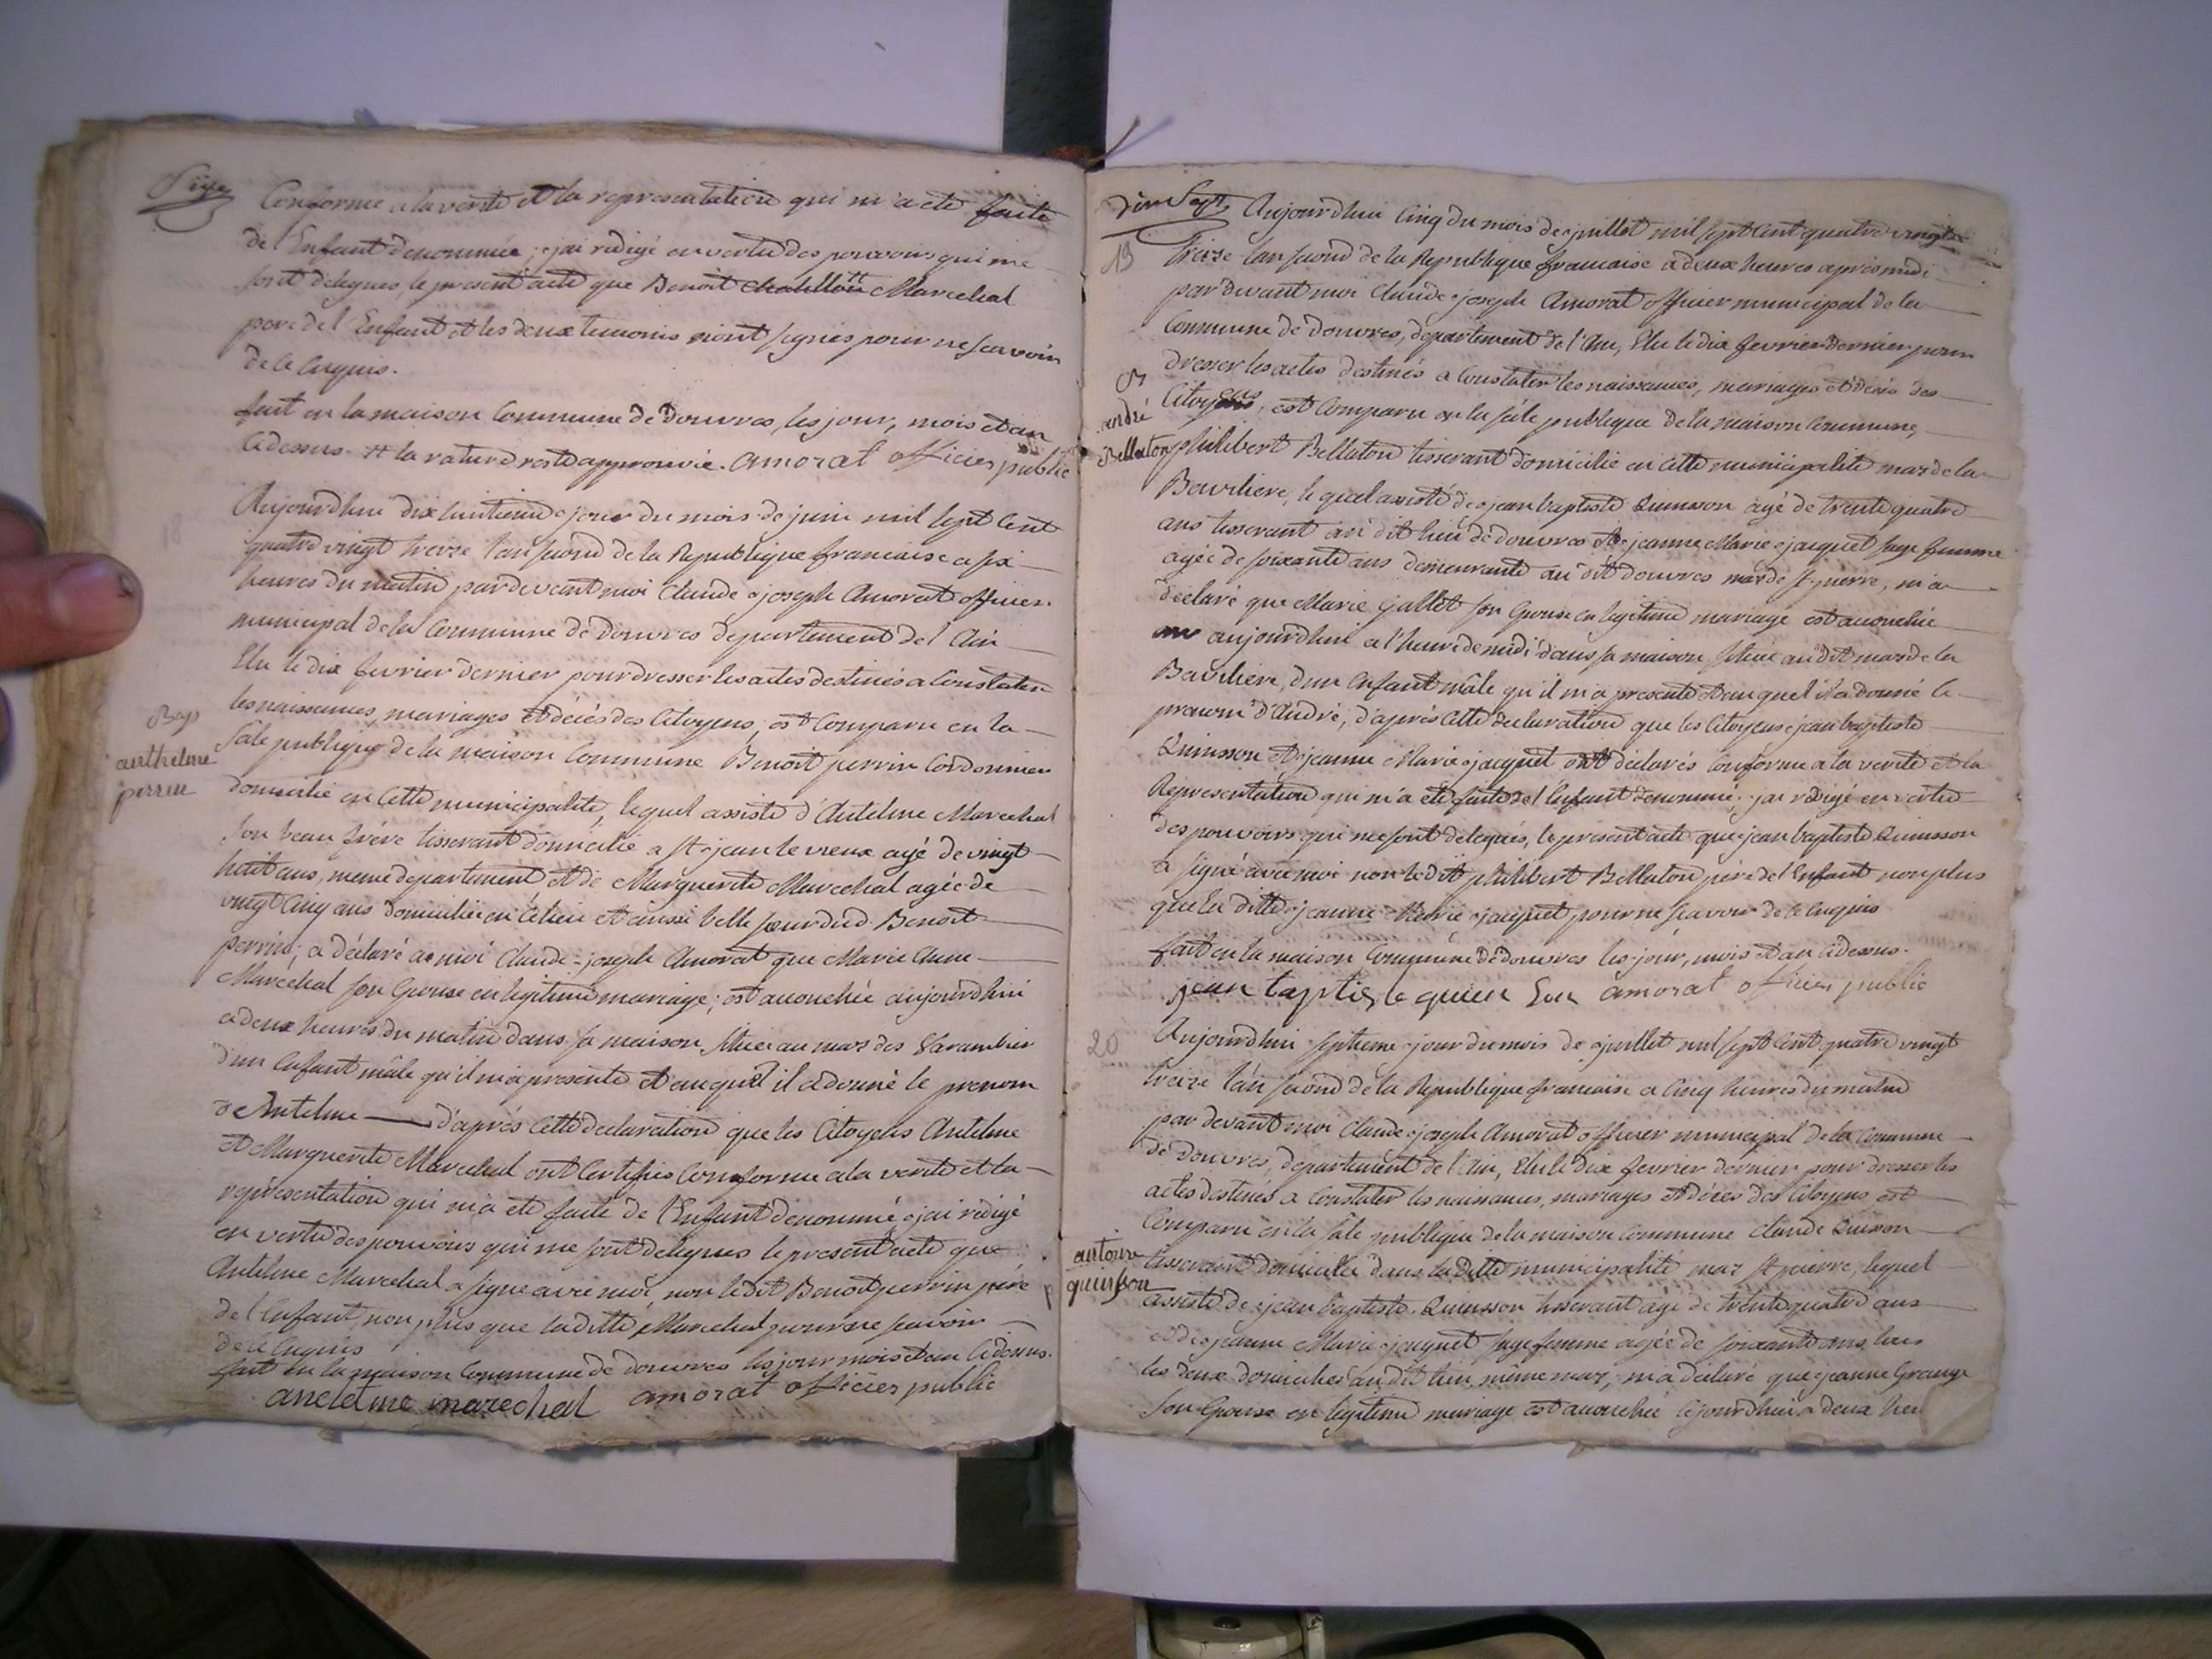 Seize
Conforme a la verité et la representation qui m'a eté faite
de l'Enfant denommée; j'ai redigé en vertu des pouvoirs qui me
sont delegués, le present acte que Benoit chatillon tt Marechal
pere de l'Enfant et les deux temoins n'ont signés pour ne scavoir
de ce Enquis.
fait en la maison Commune de Douvres, les jour, mois et an
cidessus tt la rature reste approuvée. amorat officier public
18
Aujourdhui dix huitieme jour du mois de juin mil sept Cent
quatre vingt treize l'an second de la Republique francaise a six
heures du matin par devant moi Claude joseph Amorat officier
municipal de la Commune de Douvres departement de l'Ain
Elu le dix fevrier dernier pour dresser les actes destinés a Constater
les naissances, mariages et décés des Citoyens, est Comparu en la
sale publique de la maison Commune Benoit perrin Cordonnier
anthelme
perrin
domicilié en cette municipalité, lequel assisté d'Antelme Marechal
son beau frére tisserant domicilié a st jean le vieux agé de vingt
huit ans, meme departement et de Marguerite Marechal agée de
vingt Cinq ans domiciliée en ce lieu et aussi belle soeur dud. Benoit
perrin; a déclaré a moi Claude-joseph Amorat que Marie Anne
Marechal son Epouse en legitime mariage; est accouchée aujourdhui
a deux heures du matin dans sa maison, située au mas des
d'un Enfant mâle qu'il m'a presenté et auquel il a donné le prenom
de Antelme — d'aprés cette declaration que les Citoyens Antelme
et Marguerite Marechal ont Certifiés Conforme a la verité et la
représentation qui m'a eté faite de l'Enfant denommé j'ai rédigé
en vertu des pouvoirs qui me sont delegués le present acte que
Antelme Marechal a signé avec moi, non ledit Benoit perrin pere
de l'Enfant, non plus que laditte Marechal pour ne scavoir
de ce Enquis
fait en la maison Commune de douvres les jour mois et an cidessus.
anctelme marechal amorat officier public
dix Sept
19
Aujourdhui Cinq du mois de juillet mil sept Cent quatre vingt
treize l'an second de la Republique francaise a deux heures aprés midi
par devant moi Claude joseph Amorat officier municipal de la
Commune de Douvres, departement de l'Ain, Elu le dix fevrier dernier pour
dresser les actes destinés a Constater les naissances, mariages et décés des
Citoyens, est Comparu en la sale publique de la maison Commune,
andré
Bellaton
philibert Bellaton tisserant domicilié en cette municipalité mas de la
Bevriliere, lequel assisté de jean baptiste Quinson agé de trente quatre
ans tisserant au dit lieu de douvres et jeanne Marie jacquet sage femme
agée de soixante ans demeurante au dit douvres mas de st pierre, m'a
déclaré que Marie Gallet son Epouse en legitime mariage est accouchée
aujourdhui a l'heure de midi dans sa maison située au dit mas de la
Bevriliere, d'un Enfant mâle qu'il m'a presenté et auquel il a donné le
prenom d'André, d'aprés cette declaration que les Citoyens jean baptiste
Quinsson et jeanne Marie jacquet ont declarés Conforme a la verité et la
Representation qui m'a eté faite de l'Enfant denommé; j'ai rédigé en vertu
des pouvoirs qui me sont delegués, le présent acte que jean baptiste Quinsson
a signé avec moi non ledit philibert Bellaton pére de l'Enfant non plus
que la ditte jeanne Marie jacquet pour ne scavoir de ce Enquis
fait en la maison Commune de douvres les jour, mois et an cidessus.
jean baptiste quien Son amorat officier public
20
Aujourdhui septieme jour du mois de juillet mil sept Cent quatre vingt
treize l'an second de la Republique francaise a Cinq heures du matin
par devant moi Claude joseph Amorat officier municipal de la Commune
de douvres, departement de l'Ain, Elu le dix fevrier dernier pour dresser les
actes destinés a Constater les naissances, mariages et décés des Citoyens, est
Comparu en la sale publique de la maison Commune Claude Quinson
antoine
quinson
tisserant domicilié dans laditte municipalité mas st pierre, lequel
assisté de jean baptiste Quinsson tisserant agé de trente quatre ans
et de jeanne Marie jacquet sage femme agée de soixante ans, tous
les deux domiciliés au dit lieu, même mas, m'a declaré que jeanne Grange
son Epouse en legitime mariage est accouchée cejourdhui a deux heu